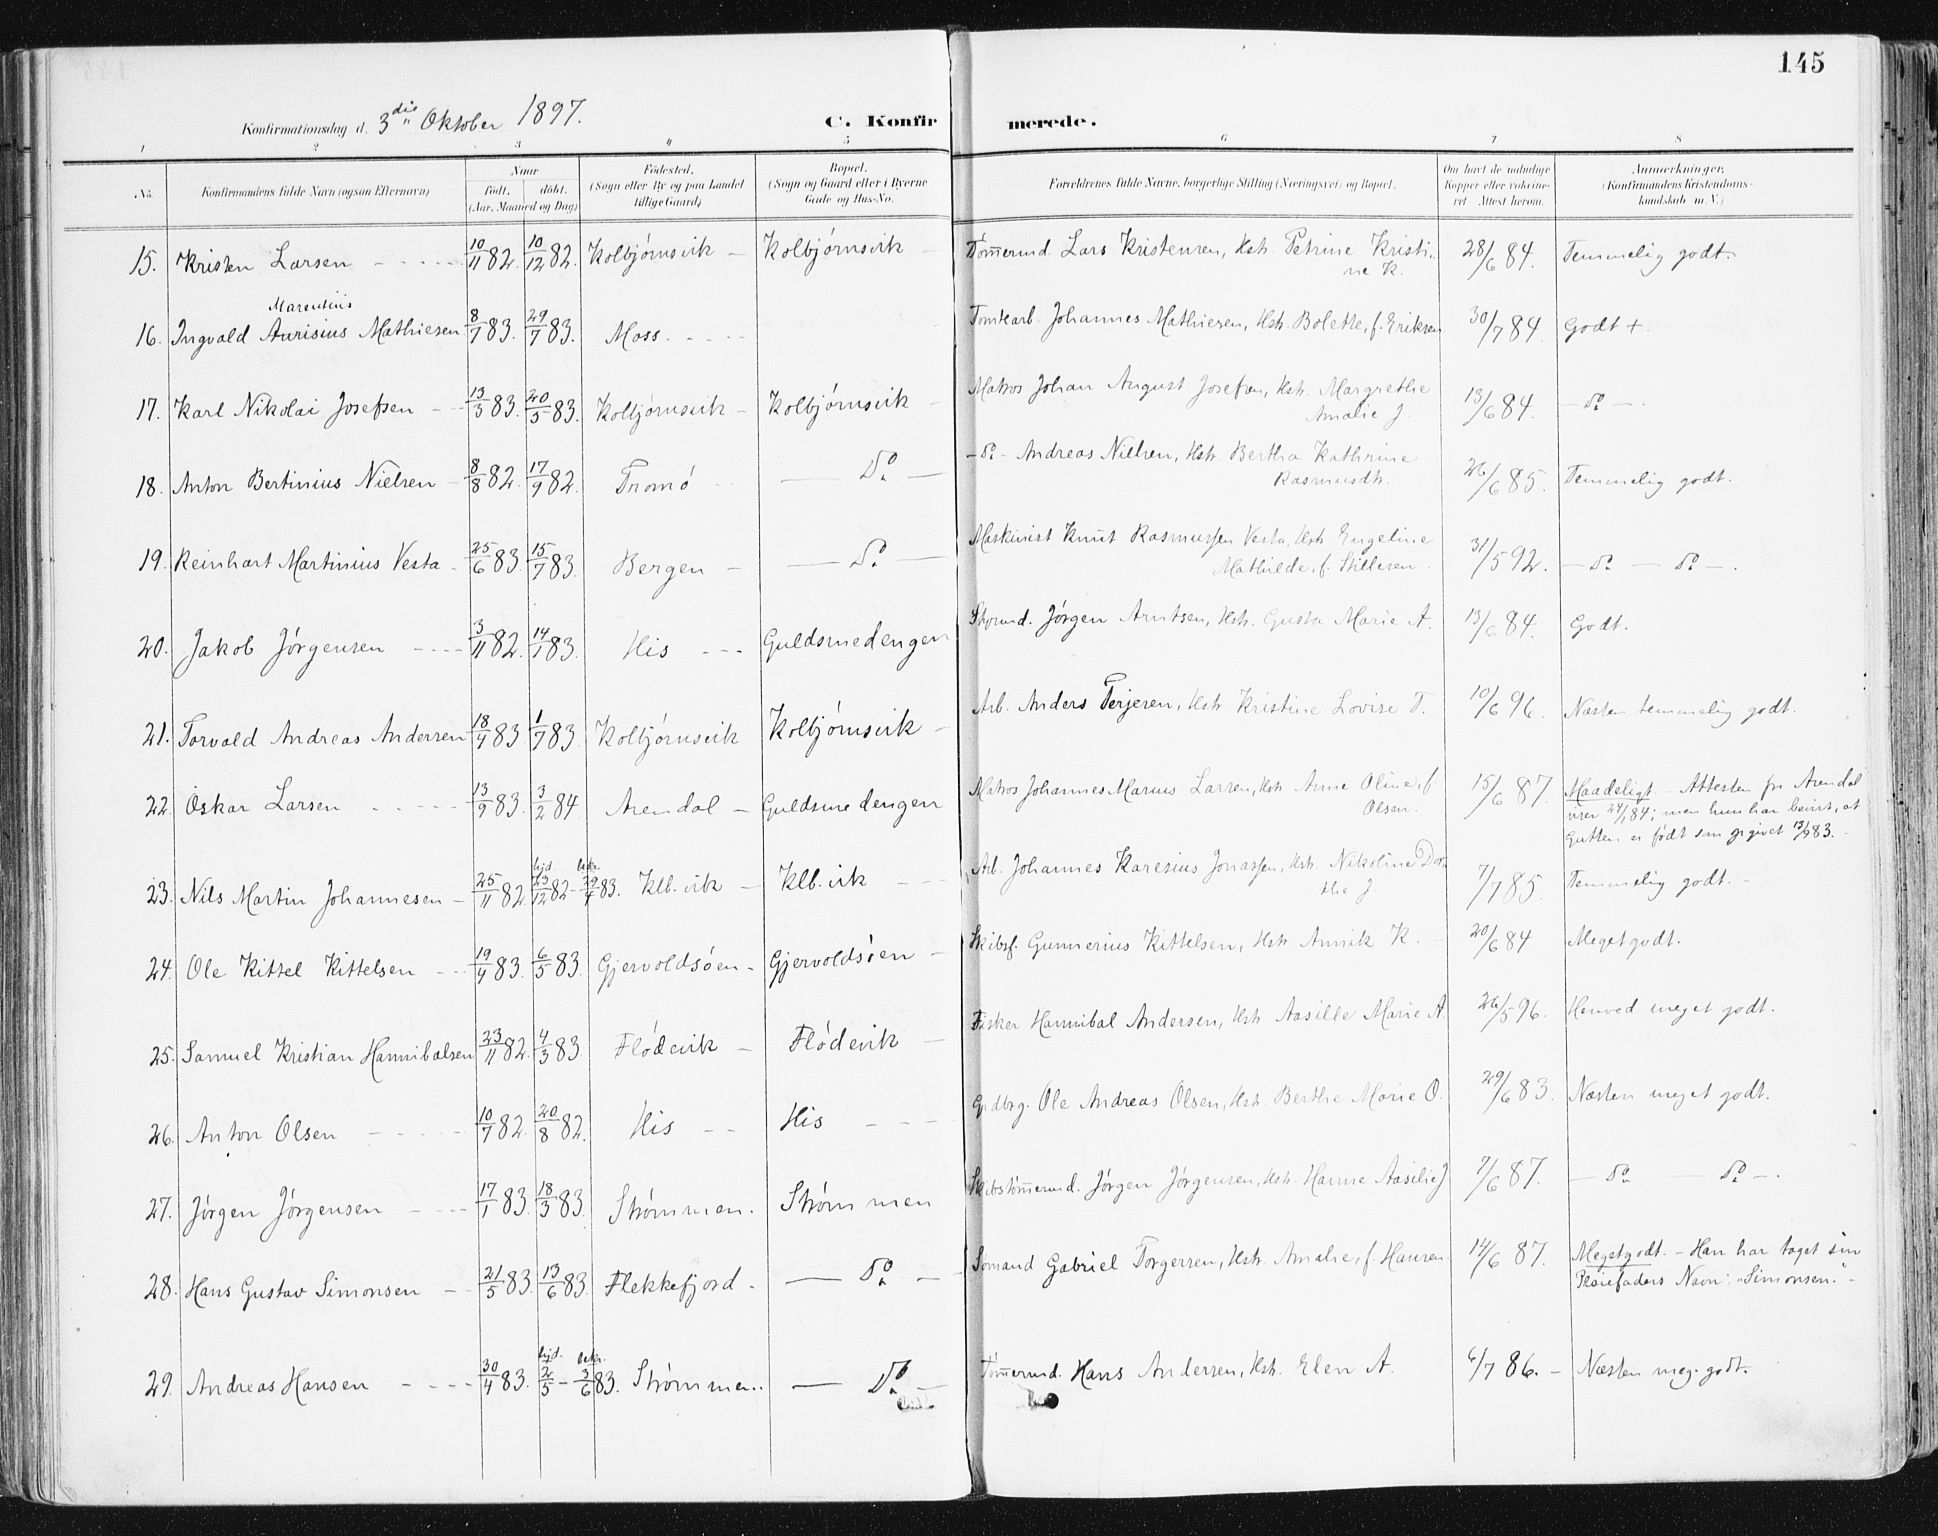 145
Konfirmationsdag d. 3die Oktober 1897.
C. Konfirmerede.
1 2 3 4 5 6 7 8
No. Konfirmandens fulde Navn (ogsaa Efternavn) Naar født, døbt. (Aar, Maaned og Dag) Fødested. (Sogn eller By og paa Landet tillige Gaard) Bopæl. (Sogn og Gaard eller i Byerne Gade og Hus-No. Forældrenes fulde Navne, borgerlige Stilling (Næringsvei) og Bopæl. Om havt de naturlige Kopper eller vaccineret Attest herom. Anmærkninger. (Konfirmandens Kristendomskundskab m. V.)
15. Kristen Larsen 10/11 82. 10/12 82. Kolbjørnsvik Kolbjørnsvik Tømmermd. Lars Kristensen, Hstr. Petrine Kristine K. 28/6 84. Temmelig godt.
Marentius
16. Ingvald Aurisius Mathiesen 8/7 83. 29/7 83. Moss. Tomtearb. Johannes Mathiesen, Hstr. Bolette, f. Eriksen 30/7 84. Godt +.
17. Karl Nikolai Josefsen 13/3 83. 20/5 83. Kolbjørnsvik Kolbjørnsvik Matros Johan August Josefsen, Hstr. Margrethe Amalie J. 13/6 84. - Do -.
18. Anton Bertinius Nielsen 8/8 82. 17/9 82. Tromø - Do - - Do - Andreas Nielsen, Hstr. Bertha Kathrine Rasmusdtr. 26/6 85. Temmelig godt.
19. Reinhart Martinius Vesta 25/6 83. 15/7 83. Bergen - Do - Maskinist Knut Rasmussen Vesta, Hstr. Engeline Mathilde, f. Stillesen. 31/5 92. - Do - Do -.
20. Jakob Jørgensen 3/11 82. 14/1 83. His Guldsmedengen Jørgen Arntsen, Hstr. Gusta Marie A. 13/6 84. Godt.
21. Torvald Andreas Andersen 18/4 83 1/7 83. Kolbjørnsvik Kolbjørnsvik Arb. Anders Terjesen, Hstr. Kristine Lovise T. 10/6 96. Næsten temmelig godt.
22. Oskar Larsen 13/9 83. 3/2 84 Arendal Guldsmedengen Matros Johannes Marius Larsen, Hstr. Anne Oline, f. Olsen. 15/6 87. Maadeligt. - Attesten fra Arendal
viser 24/1 84; men hun har bevist, at
Gutten er født som opgivet 13/9 83. -
23. Nils Martin Johannesen 25/11 82. hjd. 29/12 82 - bekr. 29/4 83. Klb.vik Klb.vik Arb. Johannes Karesius Jonassen, Hstr. Nikoline Dorthe J. 7/7 85. Temmelig godt. -
24. Ole Kittel Kittelsen 19/4 83. 6/5 83. Gjervoldsøen Gjervoldsøen Skibsf. Gunnerius Kittelsen, Hstr. Annik K. 20/6 84 Meget godt.
25. Samuel Kristian Hannibalsen 23/11 82. 4/3 83 Flødevik Flødevik Fisker Hannibal Andersen, Hstr. Aasille Marie A. 26/5 96. Henved meget godt.
26. Anton Olsen 10/7 82. 20/8 82. His His Grdbrg. Ole Andreas Olsen, Hstr. Berthe Marie O. 29/6 83. Næsten meget godt.
27. Jørgen Jørgensen 17/1 83. 18/3 83. Strømmen. Strømmen Skibstømmermd. Jørgen Jørgensen, Hstr. Hanne Aasilie J 7/6 87. - Do - Do -.
28. Hans Gustav Simonsen 21/5 83. 13/6 83. Flekkefjord. - Do - Sømand Gabriel Torgersen, Hstr. Amalie, f. Hansen 14/6 87. Meget godt. - Han har taget sin
Pleiefaders Navn: "Simonsen." -
29. Andreas Hansen 30/4 83. hjd. 2/5 - bekr. 3/6 83. Strømmen.. - Do - Tømmermd. Hans Andersen, Hstr. Elen A. 6/7 86. - Næsten meg. godt.